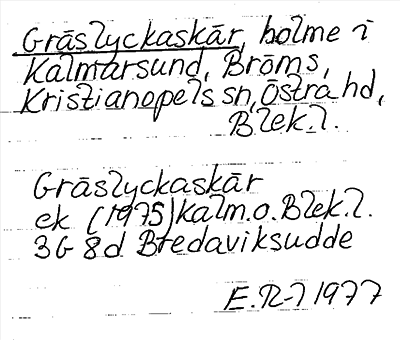 Gräslyckaskär, holme i
Kalmarsund, Bröms,
Kristianopels sn, Östra hd,
Blek.l.
Gräslyckaskär
ek (1975) Kalm.o.Blek.l.
3G 8d Bredaviksudde
E.R-7 1977